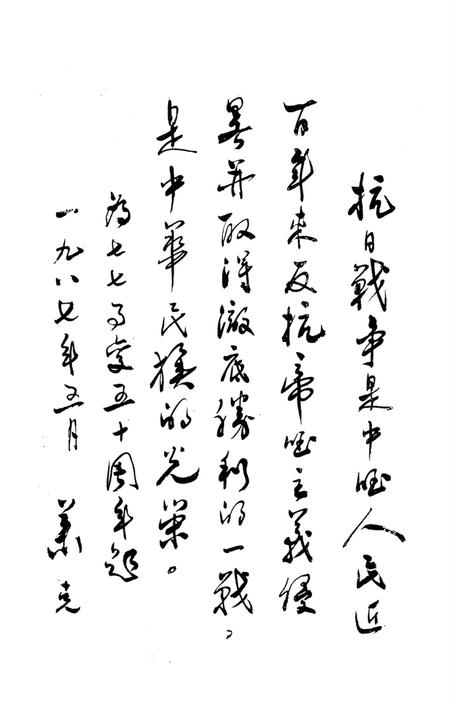 抗日戰争是中国人民近
百年来反抗帝国主義侵
畧并取得澈底勝利的一戰，
是中華民族的光榮。
為七七事变五十周年题
一九八七年五月 萧克